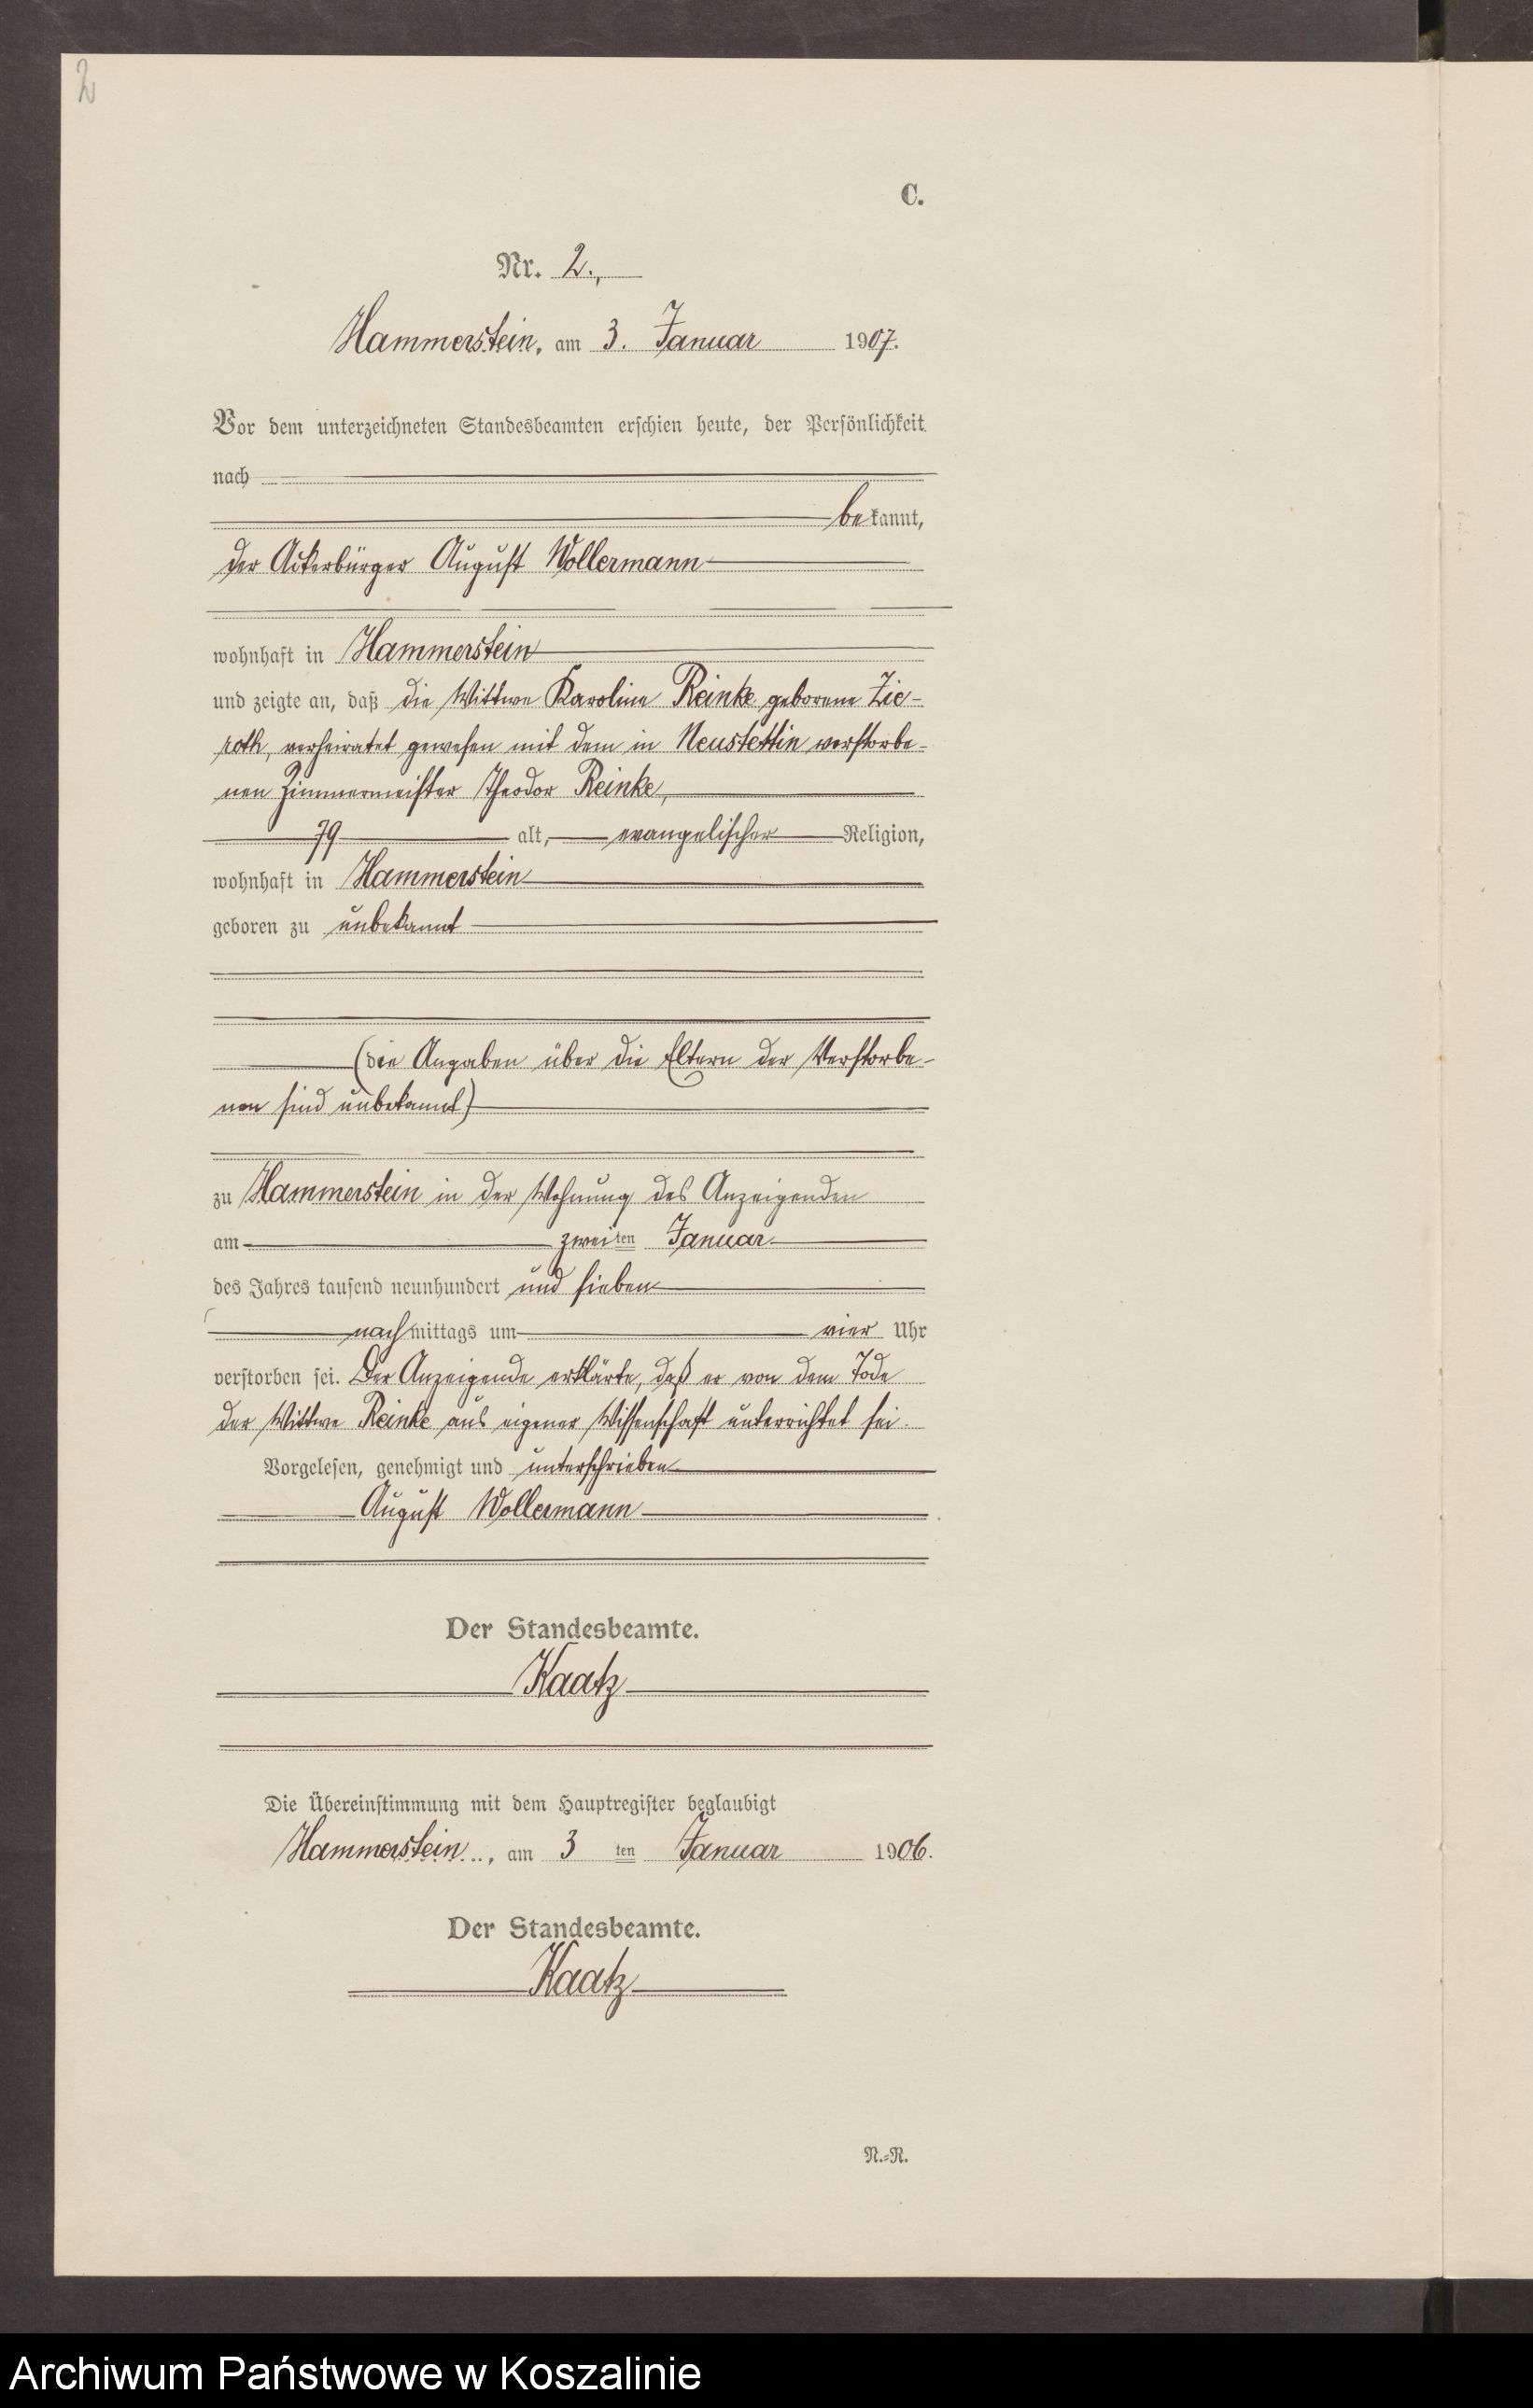 2
C.
Nr. 2.,
Hammerstein, am 3. Januar 1907.
Vor dem unterzeichneten Standesbeamten erschien heute, der Persönlichkeit
nach
bekannt,
der Ackerbürger August Wollermann
wohnhaft in Hammerstein
und zeigte an, daß die Wittwe Karoline Reinke geborene Zie-
roth, verheiratet gewesen mit dem in Neustettin verstorbe-
nen Zimmermeister Theodor Reinke,
79 alt, evangelischer Religion,
wohnhaft in Hammerstein
geboren zu unbekannt
(die Angaben über die Eltern der Verstorbe-
nen sind unbekannt)
zu Hammerstein in der Wohnung des Anzeigenden
am zweiten Januar
des Jahres tausend neunhundert und sieben
nachmittags um vier Uhr
verstorben sei. Der Anzeigende erklärte, daß er von dem Tode
der Wittwe Reinke aus eigener Wissenschaft unterrichtet sei.
Vorgelesen, genehmigt und unterschrieben
August Wollermann
Der Standesbeamte.
Kaatz
Die Übereinstimmung mit dem Hauptregister beglaubigt
Hammerstein, am 3 ten Januar 1906.
Der Standesbeamte.
Kaatz
N.=R.
Archiwum Państwowe w Koszalinie